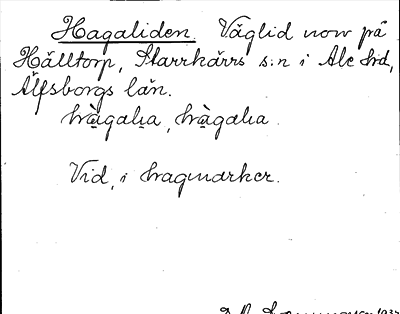 Hagaliden. Väglid nov på
Hälltorp, Starrkärrs s:n i Ale hd,
Älfsborgs län.
hàgalia, hàgalia
Vid, i hagmarker.